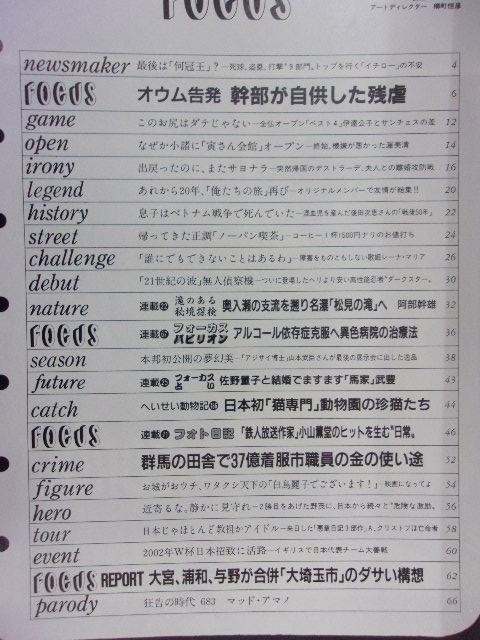 FOCUS
アートディレクター 横町恒彦
newsmaker 最後は「何冠王」?—死球、盗塁、打撃"9部門、トップを行く「イチロー」の不安 4
FOCUS オウム告発 幹部が自供した残虐 6
game このお尻はダテじゃない—全仏オープン「ベスト4」伊達公子とサンチェスの差 12
open なぜか小諸に「寅さん会館」オープン—終始、機嫌が悪かった渥美清 14
irony 出戻ったのに、またサヨナラ—突然帰国のデストラーデ、夫人との離婚攻防戦 16
legend あれから20年、「俺たちの旅」再び—オリジナルメンバーで友情が結集!! 20
history 息子はベトナム戦争で死んでいた—混血児を産んだ後田次恵さんの「戦後50年」 22
street 帰ってきた正調「ノーパン喫茶」—コーヒー1杯1500円ナリのお値打ち 24
challenge 「誰にでもできないことはあるわ」—障害をものともしない歌姫シーナ・マリア 26
debut 「21世紀の波」無人偵察機—ついに登場したヘリより安い高性能忍者"ダークスター。 30
nature 連載22 滝のある秘境探検 奥入瀬の支流を遡り名瀑「松見の滝」へ 阿部幹雄 32
FOCUS 連載 フォーカスパビリオン アルコール依存症克服へ異色病院の治療法 36
season 本邦初公開の夢幻美—「アジサイ博士」山本武臣さんが最後の展示会に出した逸品 38
future 連載 フォーカス占い 佐野量子と結婚でますます「馬家」武豊 43
catch へいせい動物記 日本初「猫専門」動物園の珍猫たち 44
FOCUS 連載 フォト日記 「鉄人放送作家」小山薫堂のヒットを生む"日常。 46
crime 群馬の田舎で37億着服市職員の金の使い途 52
figure お城がおウチ、ワタクシ天下の「白鳥麗子でございます!」—映画になってよ 54
hero 近寄るな。静かに見守れ—2勝目をあげた野茂に、日本から続々と"危険な激励。 56
tour 日本じゃほとんど教祖かアイドル—来日した「悪童日記」3部作、A.クリストフは亡命者 58
event 2002年W杯日本招致に活路—イギリスで日本代表チーム大善戦 60
FOCUS REPORT 大宮、浦和、与野が合併「大埼玉市」のダサい構想 62
parody 狂告の時代 683 マッド・アマノ 66